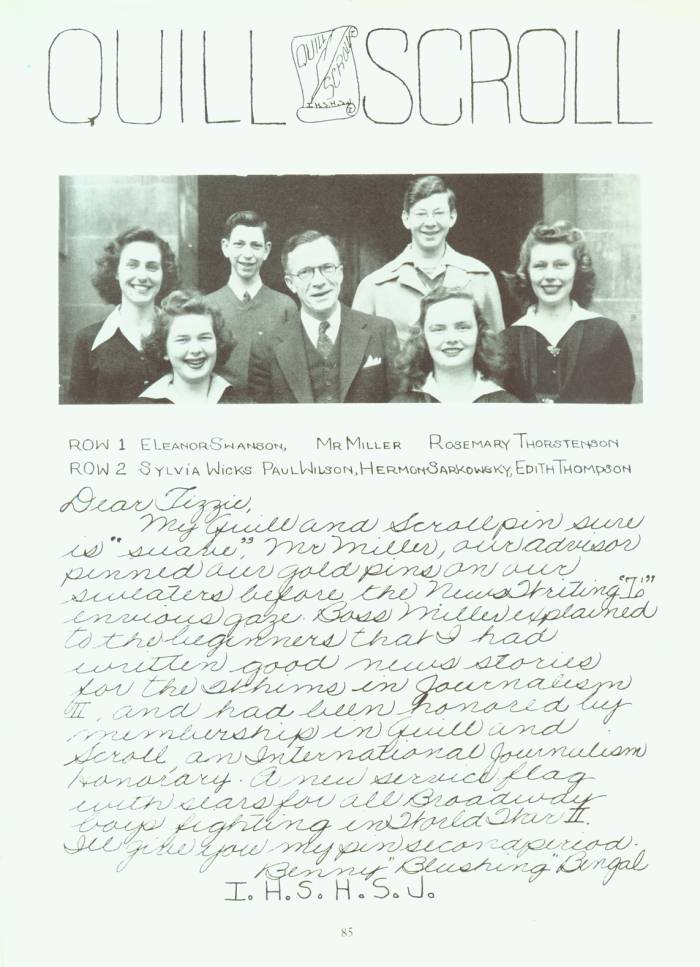 QUILL SCROLL
QUILL
SCROLL
I.H.S.H.S.J.
ROW 1 ELEANOR SWANSON, MR MILLER ROSEMARY THORSTENSON
ROW 2 SYLVIA WICKS PAUL WILSON, HERMON SARKOWSKY, EDITH THOMPSON
Dear Tizzie,
My Quill and Scroll pin sure
is "suave", Mr Miller, our advisor
pinned our gold pins on our
sweaters before the News Writing "I's"
envious gaze. Boss Miller explained
to the beginners that I had
written good news stories
for the Whims in Journalism
II, and had been honored by
membership in Quill and
Scroll, an International Journalism
Honorary. A new service flag
with sears for all Broadway
boys fighting in World War II.
I'll give you my pin second period.
Benny "Blushing" Bengal
I. H. S. H. S. J.
85